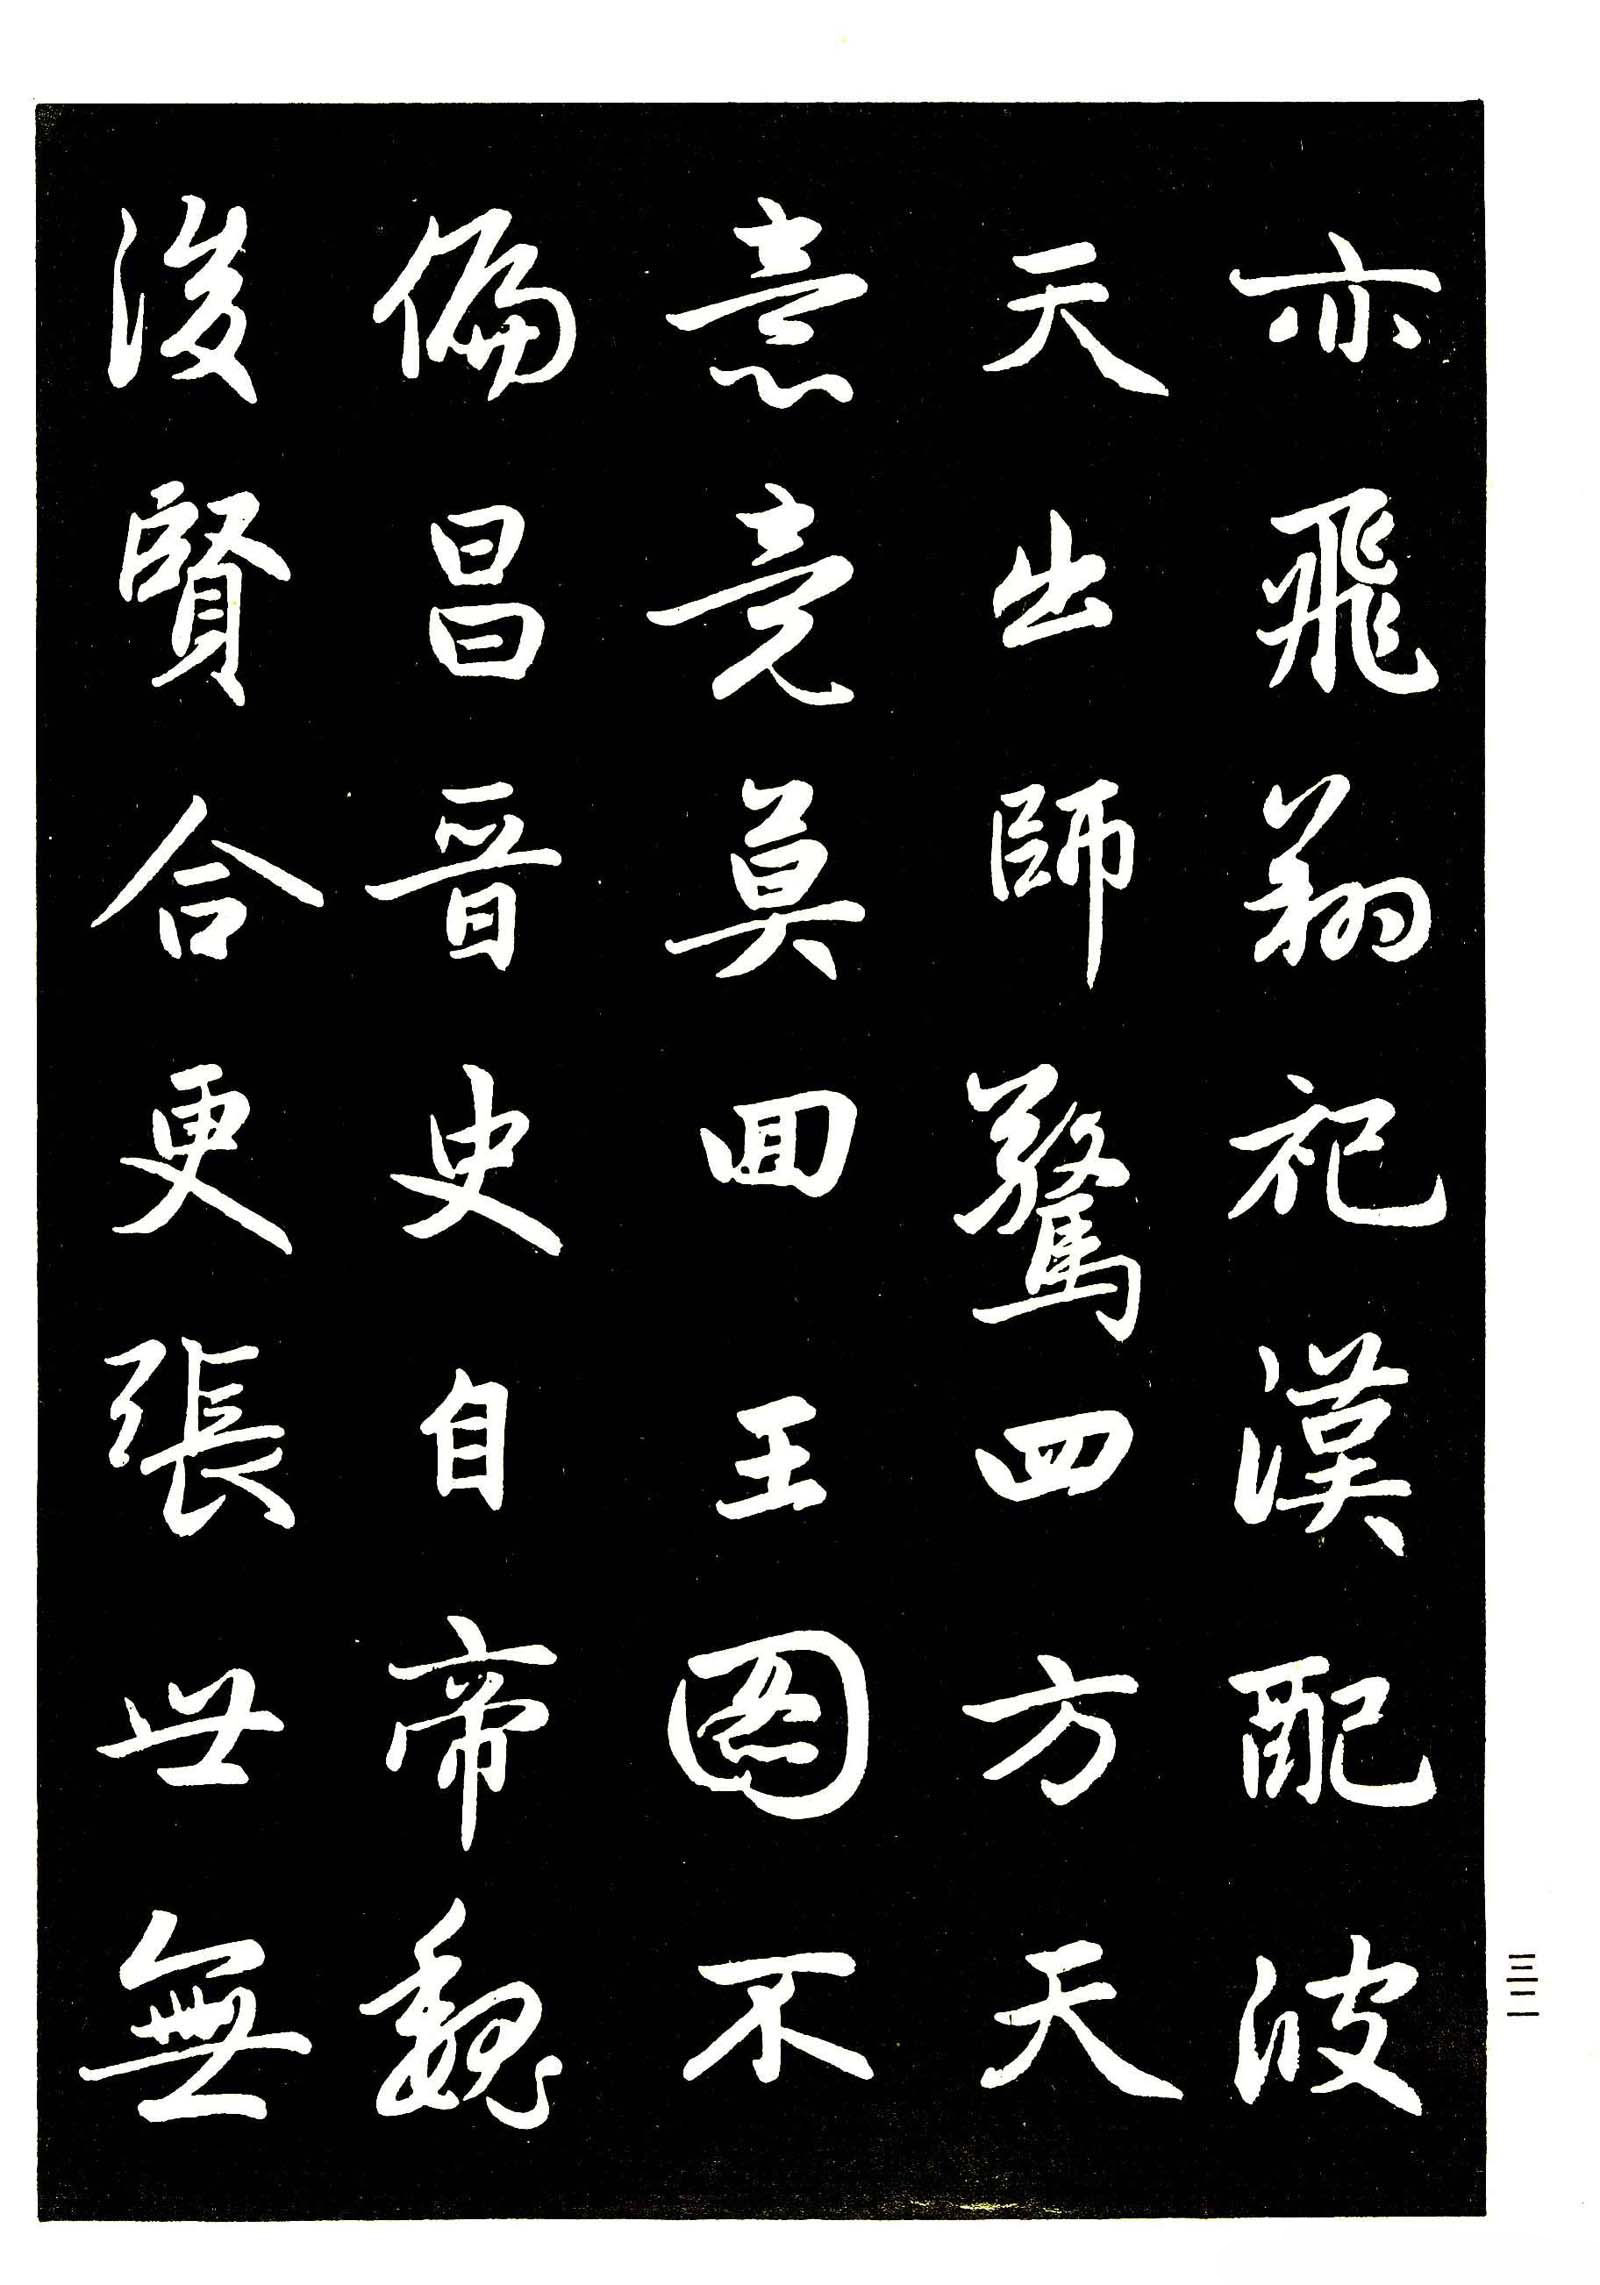 亦飛翔祀漢配彼
天出師驚四方天
意竟莫回王圖不
偏昌晉史自帝魏
後賢合更張世無
三二